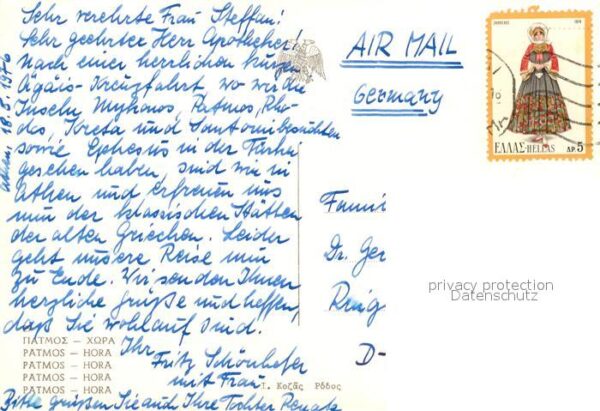 Athen, 18.5.1976
Sehr verehrte Frau Steffan!
Sehr geehrter Herr Apotheker!
Nach einer herrlichen kurzen
Ägäis-Kreuzfahrt wo wir die
Inseln, Mykonos, Patmos, Rho-
dos, Kreta und Santorin besuchten
sowie Ephesus in der Türkei
gesehen haben, sind wir in
Athen und erfreuen uns
nun der klassischen Stätten
der alten Griechen. Leider
geht unsere Reise nun
zu Ende. Wir senden Ihnen
herzliche Grüße und hoffen,
daß Sie wohlauf sind.
Ihr
Fritz Schönhofer
mit Frau
Bitte grüßen Sie auch Ihre Tochter Renate
ΠΑΤΜΟΣ – ΧΩΡΑ
PATMOS – HORA
PATMOS – HORA
PATMOS – HORA
PATMOS – HORA
Ι. Κοζᾶς Ρόδος
AIR MAIL
Germany
1974
ΕΛΛΑΣ-HELLAS
ΔΡ. 5
Famil
Dr. Ger
Ring
D-
privacy protection
Datenschutz